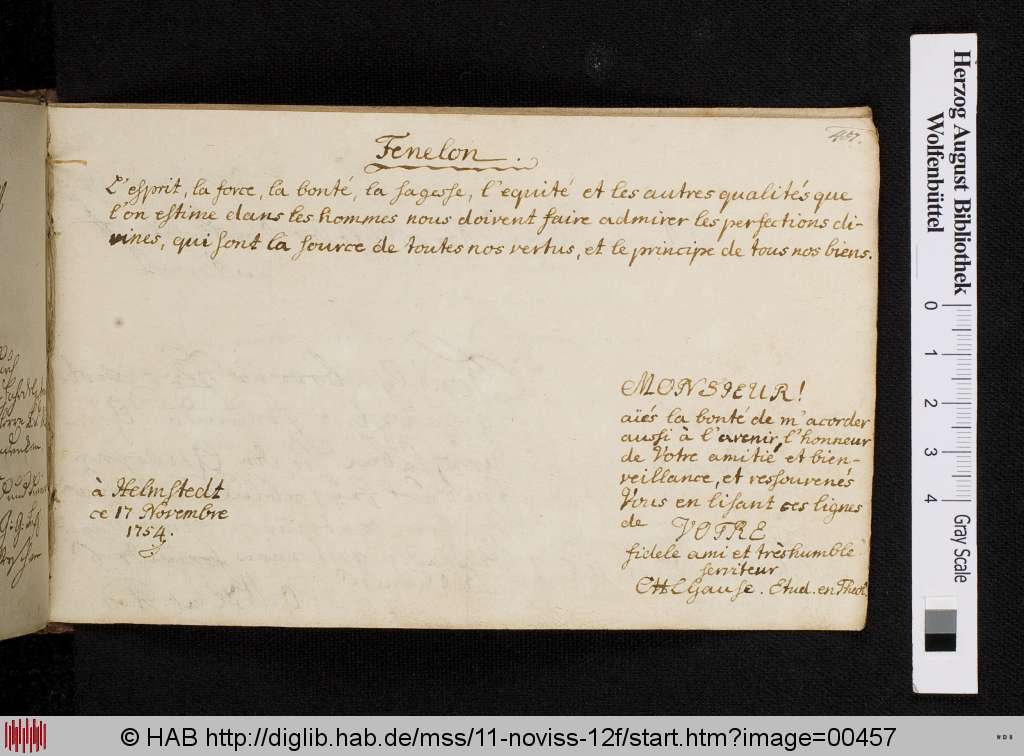 457.
Fenelon.
L'esprit, la force, la bonté, la sagesse, l'equité et les autres qualités que
l'on estime dans les hommes nous doivent faire admirer les perfections di-
vines, qui sont la source de toutes nos vertus, et le principe de tous nos biens.
à Helmstedt
ce 17 Novembre
1754.
MONSIEUR!
aiés la bonté de m'acorder
aussi à l'avenir, l'honneur
de Votre amitié et bien-
veillance, et ressouvenés
Vous en lisant ces lignes
de VOTRE
fidele ami et très humble
serviteur
Gause. Etud. en Theol.
Herzog August Bibliothek
Wolfenbüttel
0
1
2
3
4
Gray Scale
© HAB http://diglib.hab.de/mss/11-noviss-12f/start.htm?image=00457